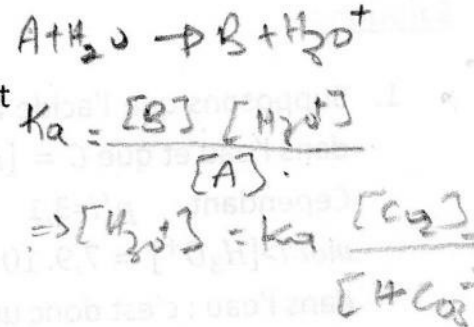 A + H₂O → B + H₃O⁺
t
Ka = [B] [H₃O⁺]
[A].
⇒ [H₃O⁺] = Ka [CO₂]
[HCO₃⁻